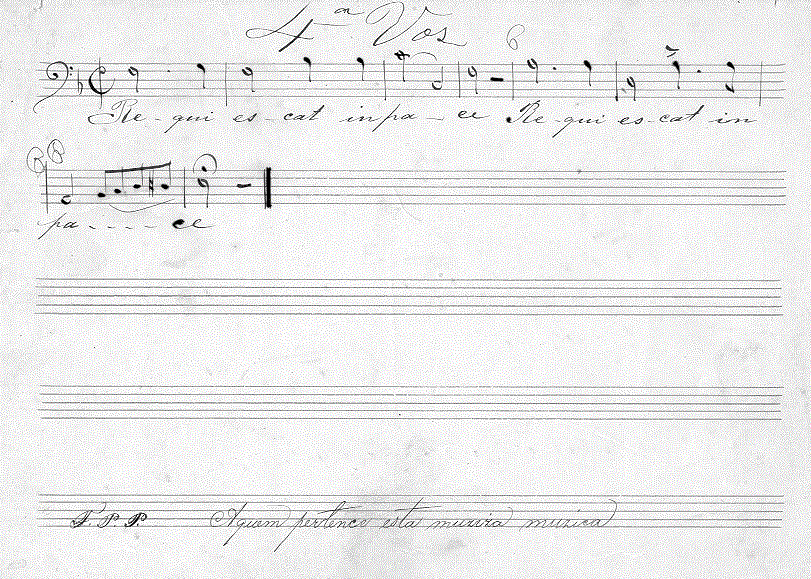 4ª Voz
Re - qui es - cat in pa - ce Re - qui es - cat in
pa - - - - ce
F. P. P. Aquem pertence esta muzica